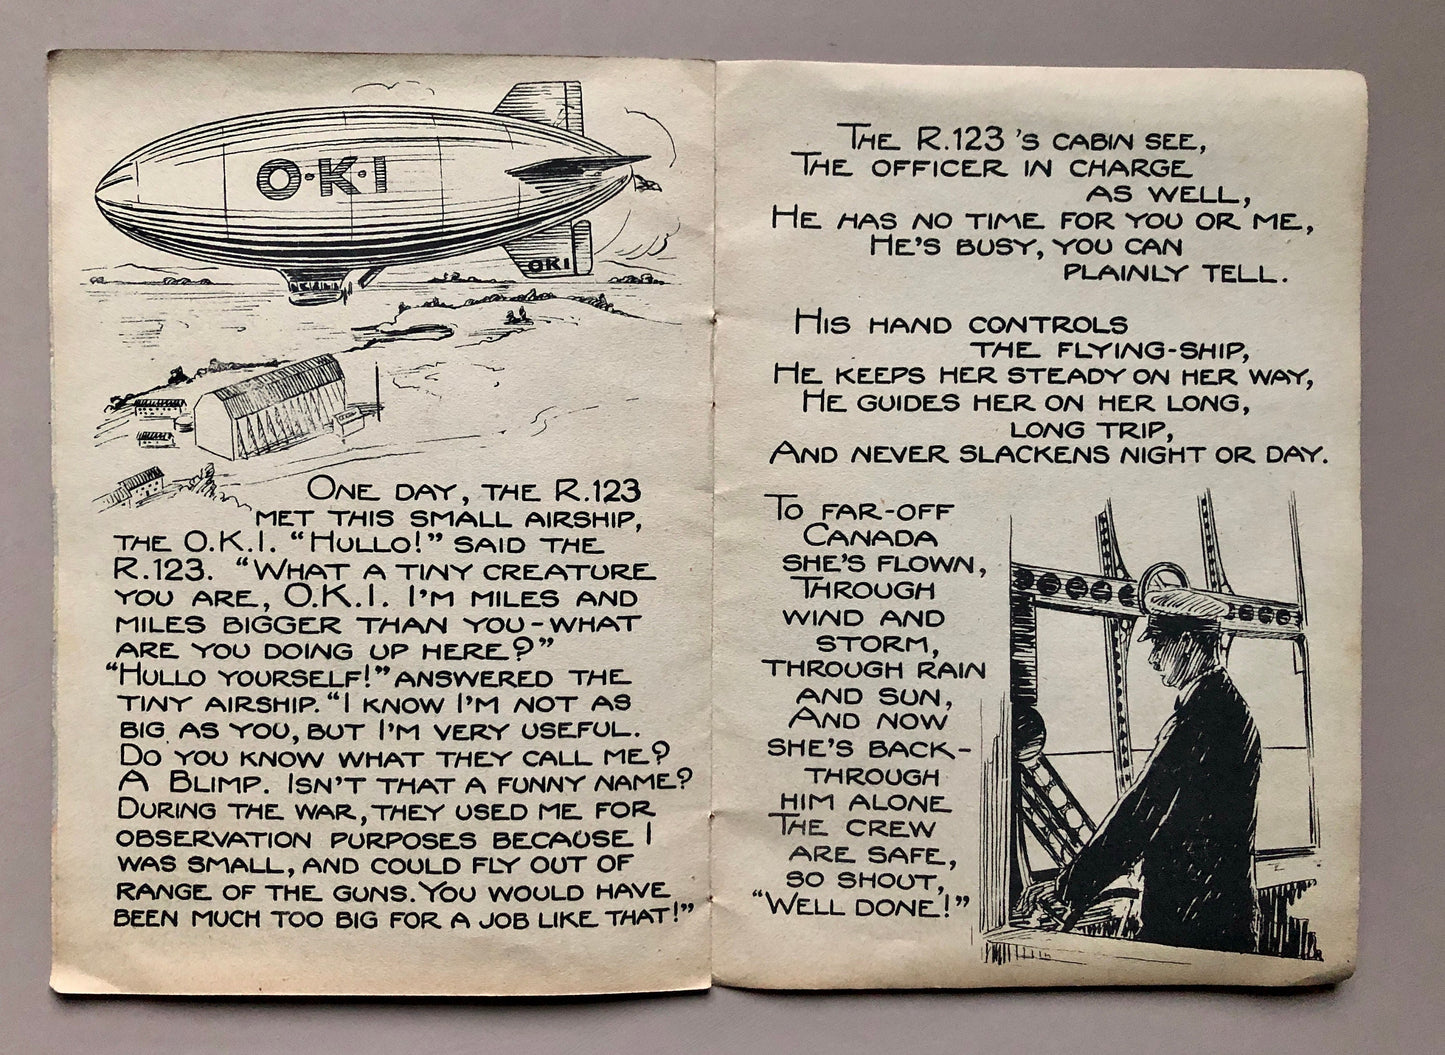 O·K·I
OKI
ONE DAY, THE R.123
MET THIS SMALL AIRSHIP,
THE O.K.I. "HULLO!" SAID THE
R.123. "WHAT A TINY CREATURE
YOU ARE, O.K.I. I'M MILES AND
MILES BIGGER THAN YOU-WHAT
ARE YOU DOING UP HERE?"
"HULLO YOURSELF!" ANSWERED THE
TINY AIRSHIP. "I KNOW I'M NOT AS
BIG AS YOU, BUT I'M VERY USEFUL.
DO YOU KNOW WHAT THEY CALL ME?
A BLIMP. ISN'T THAT A FUNNY NAME?
DURING THE WAR, THEY USED ME FOR
OBSERVATION PURPOSES BECAUSE I
WAS SMALL, AND COULD FLY OUT OF
RANGE OF THE GUNS. YOU WOULD HAVE
BEEN MUCH TOO BIG FOR A JOB LIKE THAT!"
THE R.123'S CABIN SEE,
THE OFFICER IN CHARGE
AS WELL,
HE HAS NO TIME FOR YOU OR ME,
HE'S BUSY, YOU CAN
PLAINLY TELL.
HIS HAND CONTROLS
THE FLYING-SHIP,
HE KEEPS HER STEADY ON HER WAY,
HE GUIDES HER ON HER LONG,
LONG TRIP,
AND NEVER SLACKENS NIGHT OR DAY.
TO FAR-OFF
CANADA
SHE'S FLOWN,
THROUGH
WIND AND
STORM,
THROUGH RAIN
AND SUN,
AND NOW
SHE'S BACK-
THROUGH
HIM ALONE
THE CREW
ARE SAFE,
SO SHOUT,
"WELL DONE!"